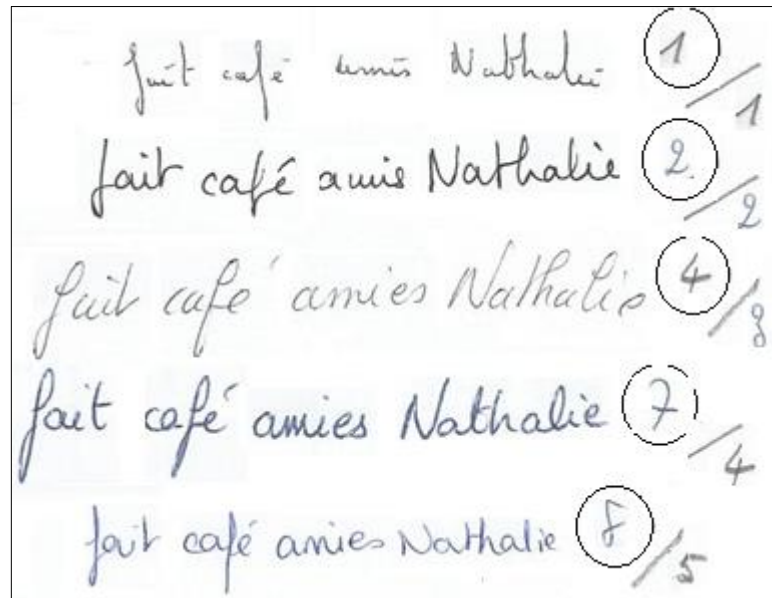 fait café amis Nathalie 1/1
fait café amis Nathalie 2/2
fait café amies Nathalie 4/3
fait café amies Nathalie 7/4
fait café amies Nathalie 8/5